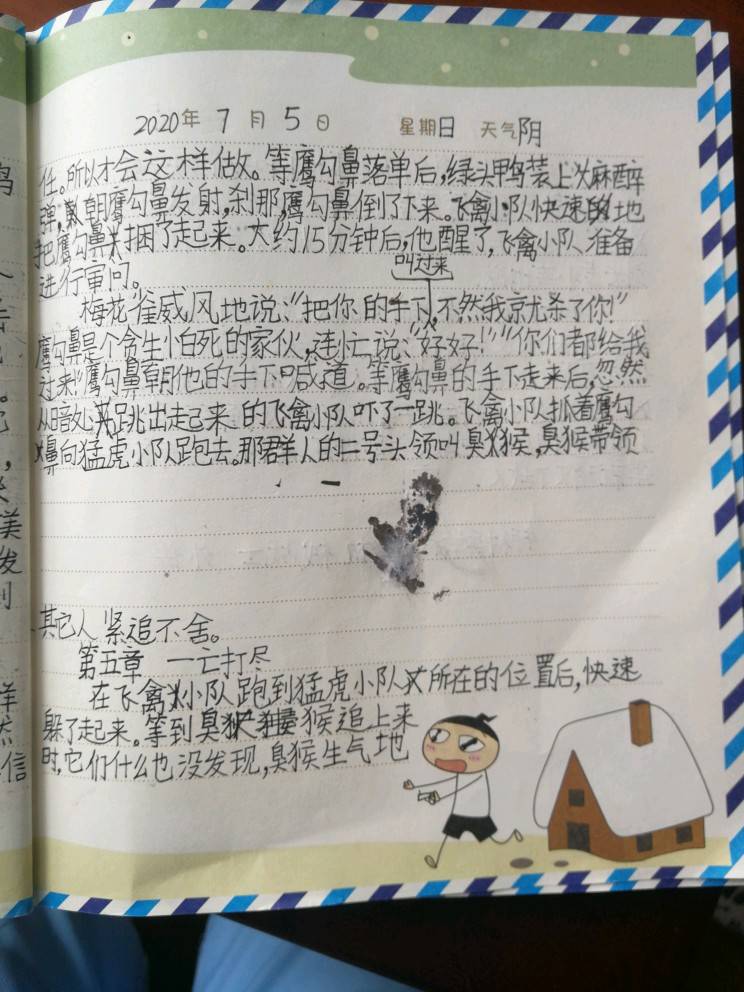 2020年 7月 5日 星期日 天气阴
任。所以才会这样做。等鹰勾鼻落单后,绿头鸭装上麻醉
弹,朝鹰勾鼻发射,刹那,鹰勾鼻倒了下来。飞禽小队快速的地
把鹰勾鼻捆了起来。大约15分钟后,他醒了,飞禽小队准备
进行审问。
叫过来
梅花雀威风地说:“把你的手下,不然我就杀了你!”
鹰勾鼻是个贪生怕死的家伙,连忙说:“好好!”“你们都给我
过来!”鹰勾鼻朝他的手下喊道。等鹰勾鼻的手下走来后,忽然
从暗处跳出走起来的飞禽小队吓了一跳。飞禽小队抓着鹰勾
鼻向猛虎小队跑去。那群人的二号头领叫臭猴,臭猴带领
其它人紧追不舍。
第五章 一亡打尽
在飞禽小队跑到猛虎小队所在的位置后,快速
躲了起来。等到臭猴追上来
时,它们什么也没发现,臭猴生气地
鸟
美
发
样
然
信